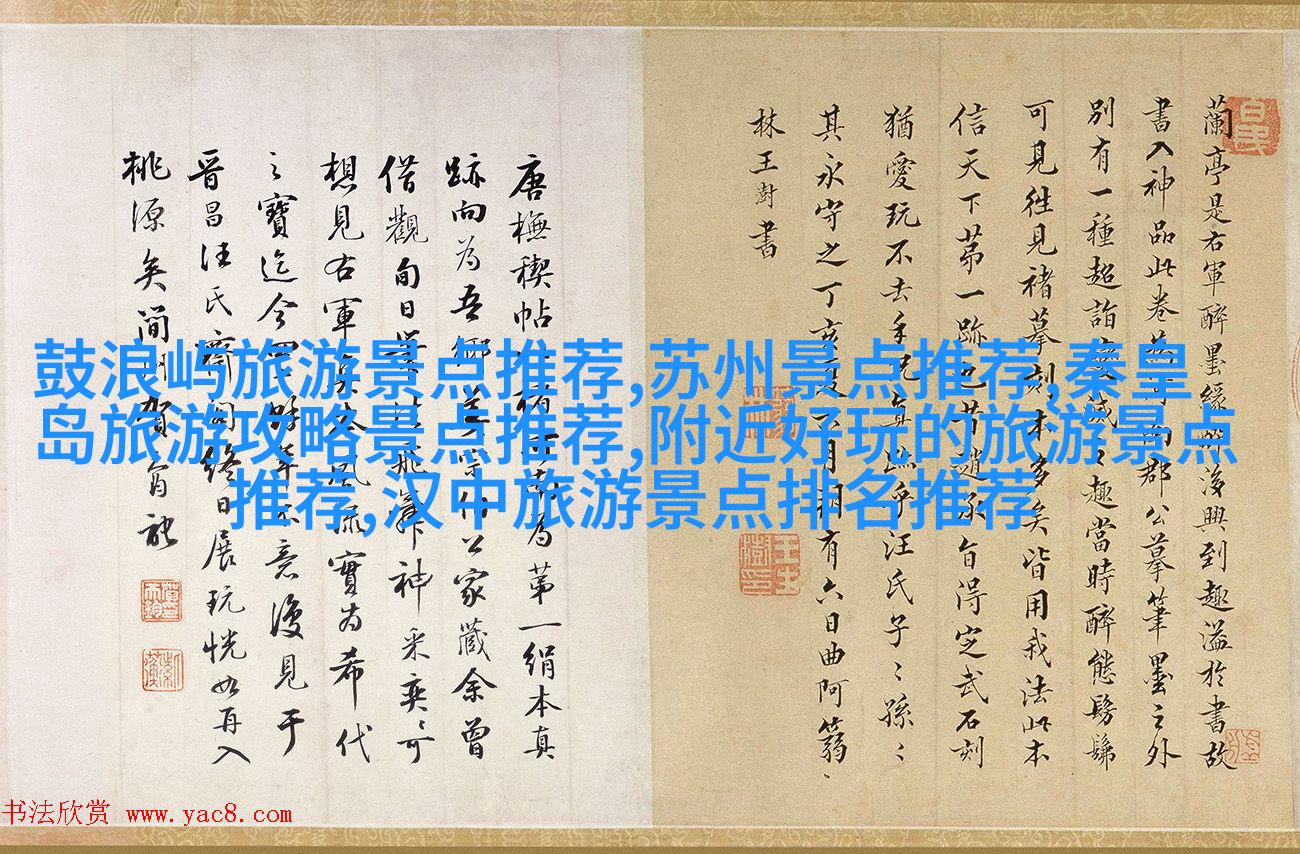 鼓浪屿旅游景点推荐,苏州景点推荐,秦皇
岛旅游攻略景点推荐,附近好玩的旅游景点
推荐,汉中旅游景点排名推荐
蘭亭是右軍醉墨緣後興到趣溢於書故
書入神品此卷郡公摹筆墨之外
別有一種超詣之趣當時醉態髣髴
可見往見褚摹刻本多矣皆用我法此本
信天下第一跡也自得定武石刻
猶愛玩不去手況真跡乎汪氏子〻孫〻
其永守之丁亥月朔有六日曲阿翁
林王澍書
唐橅禊帖為第一絹本真
跡向為吾鄉家藏余曾
借觀旬日神采奕〻可
想見右軍實為希代
之寶迄今四意復見于
晉昌汪氏齋閣終日展玩恍如再入
桃源矣簡
书法欣赏 www.yac8.com